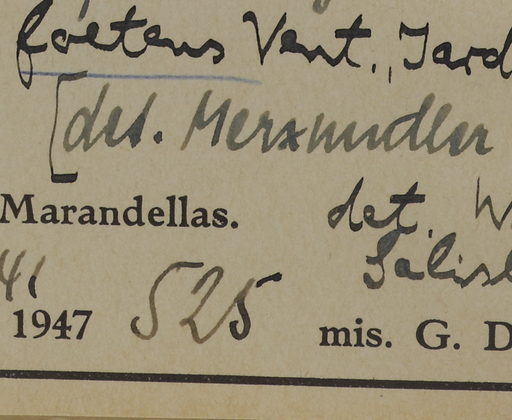 foetens Vent., Jard
[det. Merxmüller
Marandellas. det. W.
Salisb
41
1947 525 mis. G. D